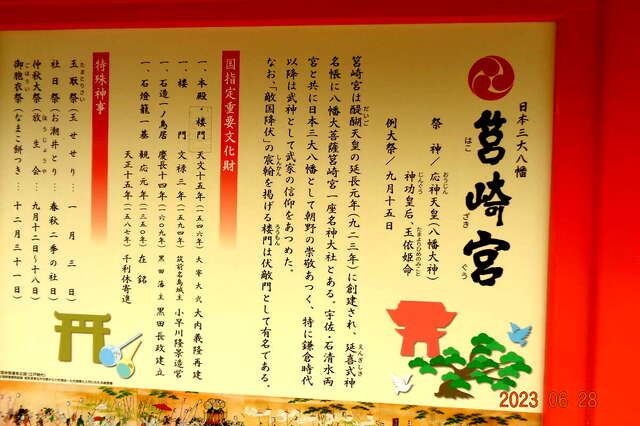 日本三大八幡
筥崎宮
はこざきぐう
祭神／応神天皇（八幡大神）
おうじん
神功皇后、玉依姫命
じんぐう たまよりひめのみこと
例大祭／九月十五日
筥崎宮は醍醐天皇の延長元年（九二三年）に創建され、延喜式神
だいご えんぎしき
名帳に八幡大菩薩筥崎宮一座名神大社とある。宇佐・石清水両
宮と共に日本三大八幡として朝野の崇敬あつく、特に鎌倉時代
以降は武神として武家の信仰をあつめた。
なお、「敵国降伏」の宸翰を掲げる楼門は伏敵門として有名である。
しんかん ろうもん
国指定重要文化財
一、本殿・楼門 天文十五年（一五四六） 大宰大弐 大内義隆再建
一、楼門 文禄三年（一五九四） 筑前名島城主 小早川隆景造営
一、石造一ノ鳥居 慶長十四年（一六〇九） 黒田藩主 黒田長政建立
一、石燈籠一基 観応元年（一三五〇） 在銘
天正十五年（一五八七） 千利休寄進
特殊神事
玉取祭（玉せせり）… 一月三日
たまとりさい
社日祭（お潮井とり）… 春秋二季の社日
仲秋大祭（放生会）… 九月十二日～十八日
ほうじょうや
御胞衣祭（なまこ餅つき）… 十二月三十一日
ごほうい
2023 06 28